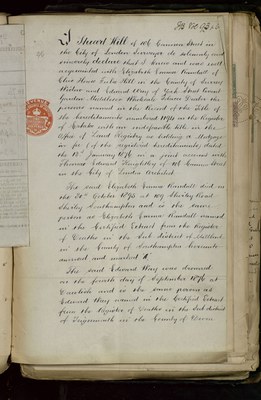 I Stuart Hill of 118 Cannon Street in
the City of London Surveyor do solemnly and
sincerely declare that I knew and was well
acquainted with Elizabeth Emma Randall of
House Tulse Hill in the County of Surrey
and Edward Way of York Street Covent
Garden Middlesex Wholesale
persons named in the Record of the Title of
the numbered in the Register
of Estates with an indefeasible title in the
Office of Land Registry as holding a Mortgage
in fee of the registered dated
the 12th January 18 on a joint account with
Thomas Edward of 118 Cannon Street
in the City of London Architect
The said Elizabeth Emma Randall died on
the 30th October 1893 at 109 Shirley Road
Shirley Southampton and is the same
person as Elizabeth Emma Randall named
in the Certified Extract from the Register
of Deaths in the Sub district of Millbrook
in the County of Southampton hereunto
annexed and marked "A"
The said Edward Way was drowned
on the fourth day of September 1876 at
Dawlish and is the same person as
Edward Way named in the Certified Extract
from the Register of Deaths in the Sub district
of Teignmouth in the County of Devon